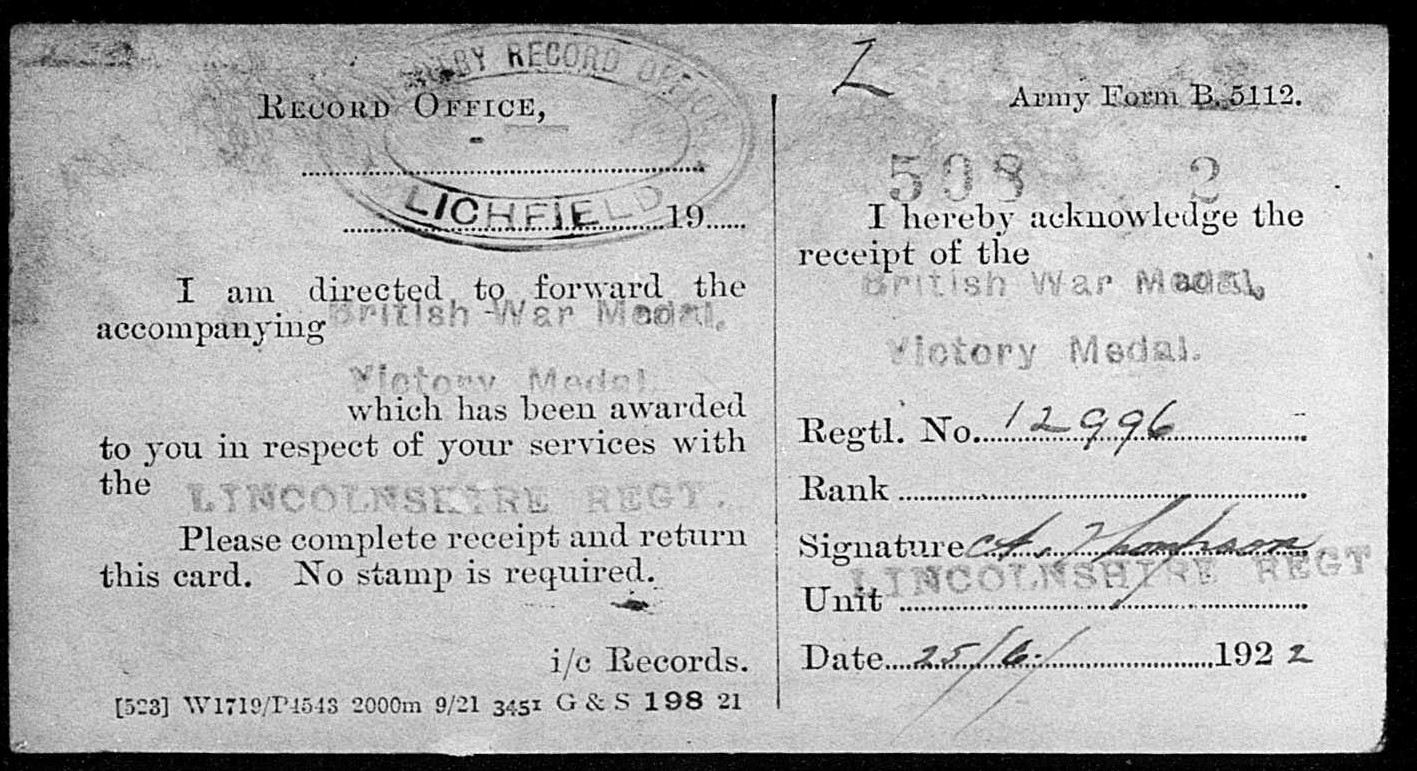 RECORD OFFICE
LICHFIELD
RECORD OFFICE,
19
I am directed to forward the
accompanying British War Medal,
Victory Medal
which has been awarded
to you in respect of your services with
the LINCOLNSHIRE REGT.
Please complete receipt and return
this card. No stamp is required.
i/c Records.
[523] W1719/P4543 2000m 9/21 3451 G & S 198 21
Army Form B. 5112.
508 2
I hereby acknowledge the
receipt of the
British War Medal,
Victory Medal.
Regtl. No. 12996
Rank
Signature Thompson
LINCOLNSHIRE REGT
Unit
Date 25/6/ 1922